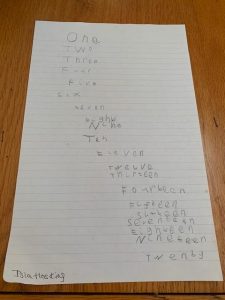 One
Two
Three
Four
Five
six
seven
eight
Nine
Ten
Eleven
Twelve
Thirteen
Fourteen
Fifteen
Sixteen
Seventeen
Eighteen
Nineteen
Twenty